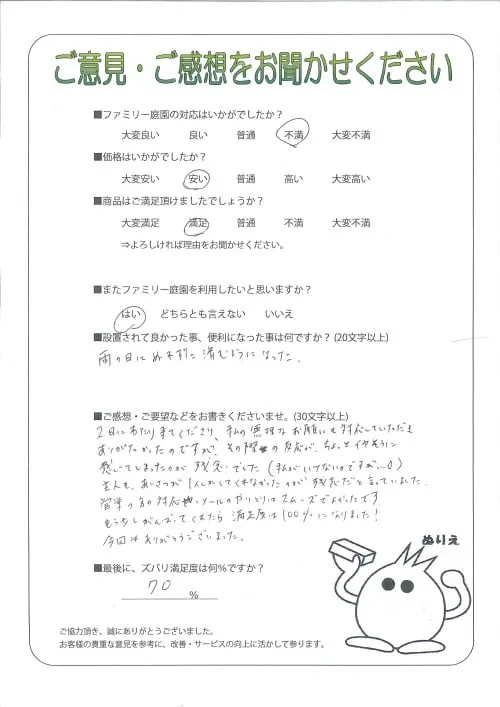 ご意見・ご感想をお聞かせください
■ファミリー庭園の対応はいかがでしたか？
大変良い 良い 普通 不満 大変不満
■価格はいかがでしたか？
大変安い 安い 普通 高い 大変高い
■商品はご満足頂けましたでしょうか？
大変満足 満足 普通 不満 大変不満
⇒よろしければ理由をお聞かせください。
■またファミリー庭園を利用したいと思いますか？
はい どちらとも言えない いいえ
■設置されて良かった事、便利になった事は何ですか？(20文字以上)
雨の日にぬれずに済むようになった。
■ご感想・ご要望などをお書きくださいませ。(30文字以上)
2日にわたり来てくださり、私の無理なお願いにも対応していただき
ありがたかったのですが、その際の反応が、ちょっとイヤそうに
感じてしまったのが残念でした(私がいけないのですが…)
主人も、あいさつが1人しかしてくれなかったのが残念だと言っていました。
営業の方の対応、メールのやりとりはスムーズでよかったです
もう少しがんばってくれたら満足度は100%になりました！
今回はありがとうございました。
ぬりえ
■最後に、ズバリ満足度は何％ですか？
70 ％
ご協力頂き、誠にありがとうございました。
お客様の貴重な意見を参考に、改善・サービスの向上に活かして参ります。